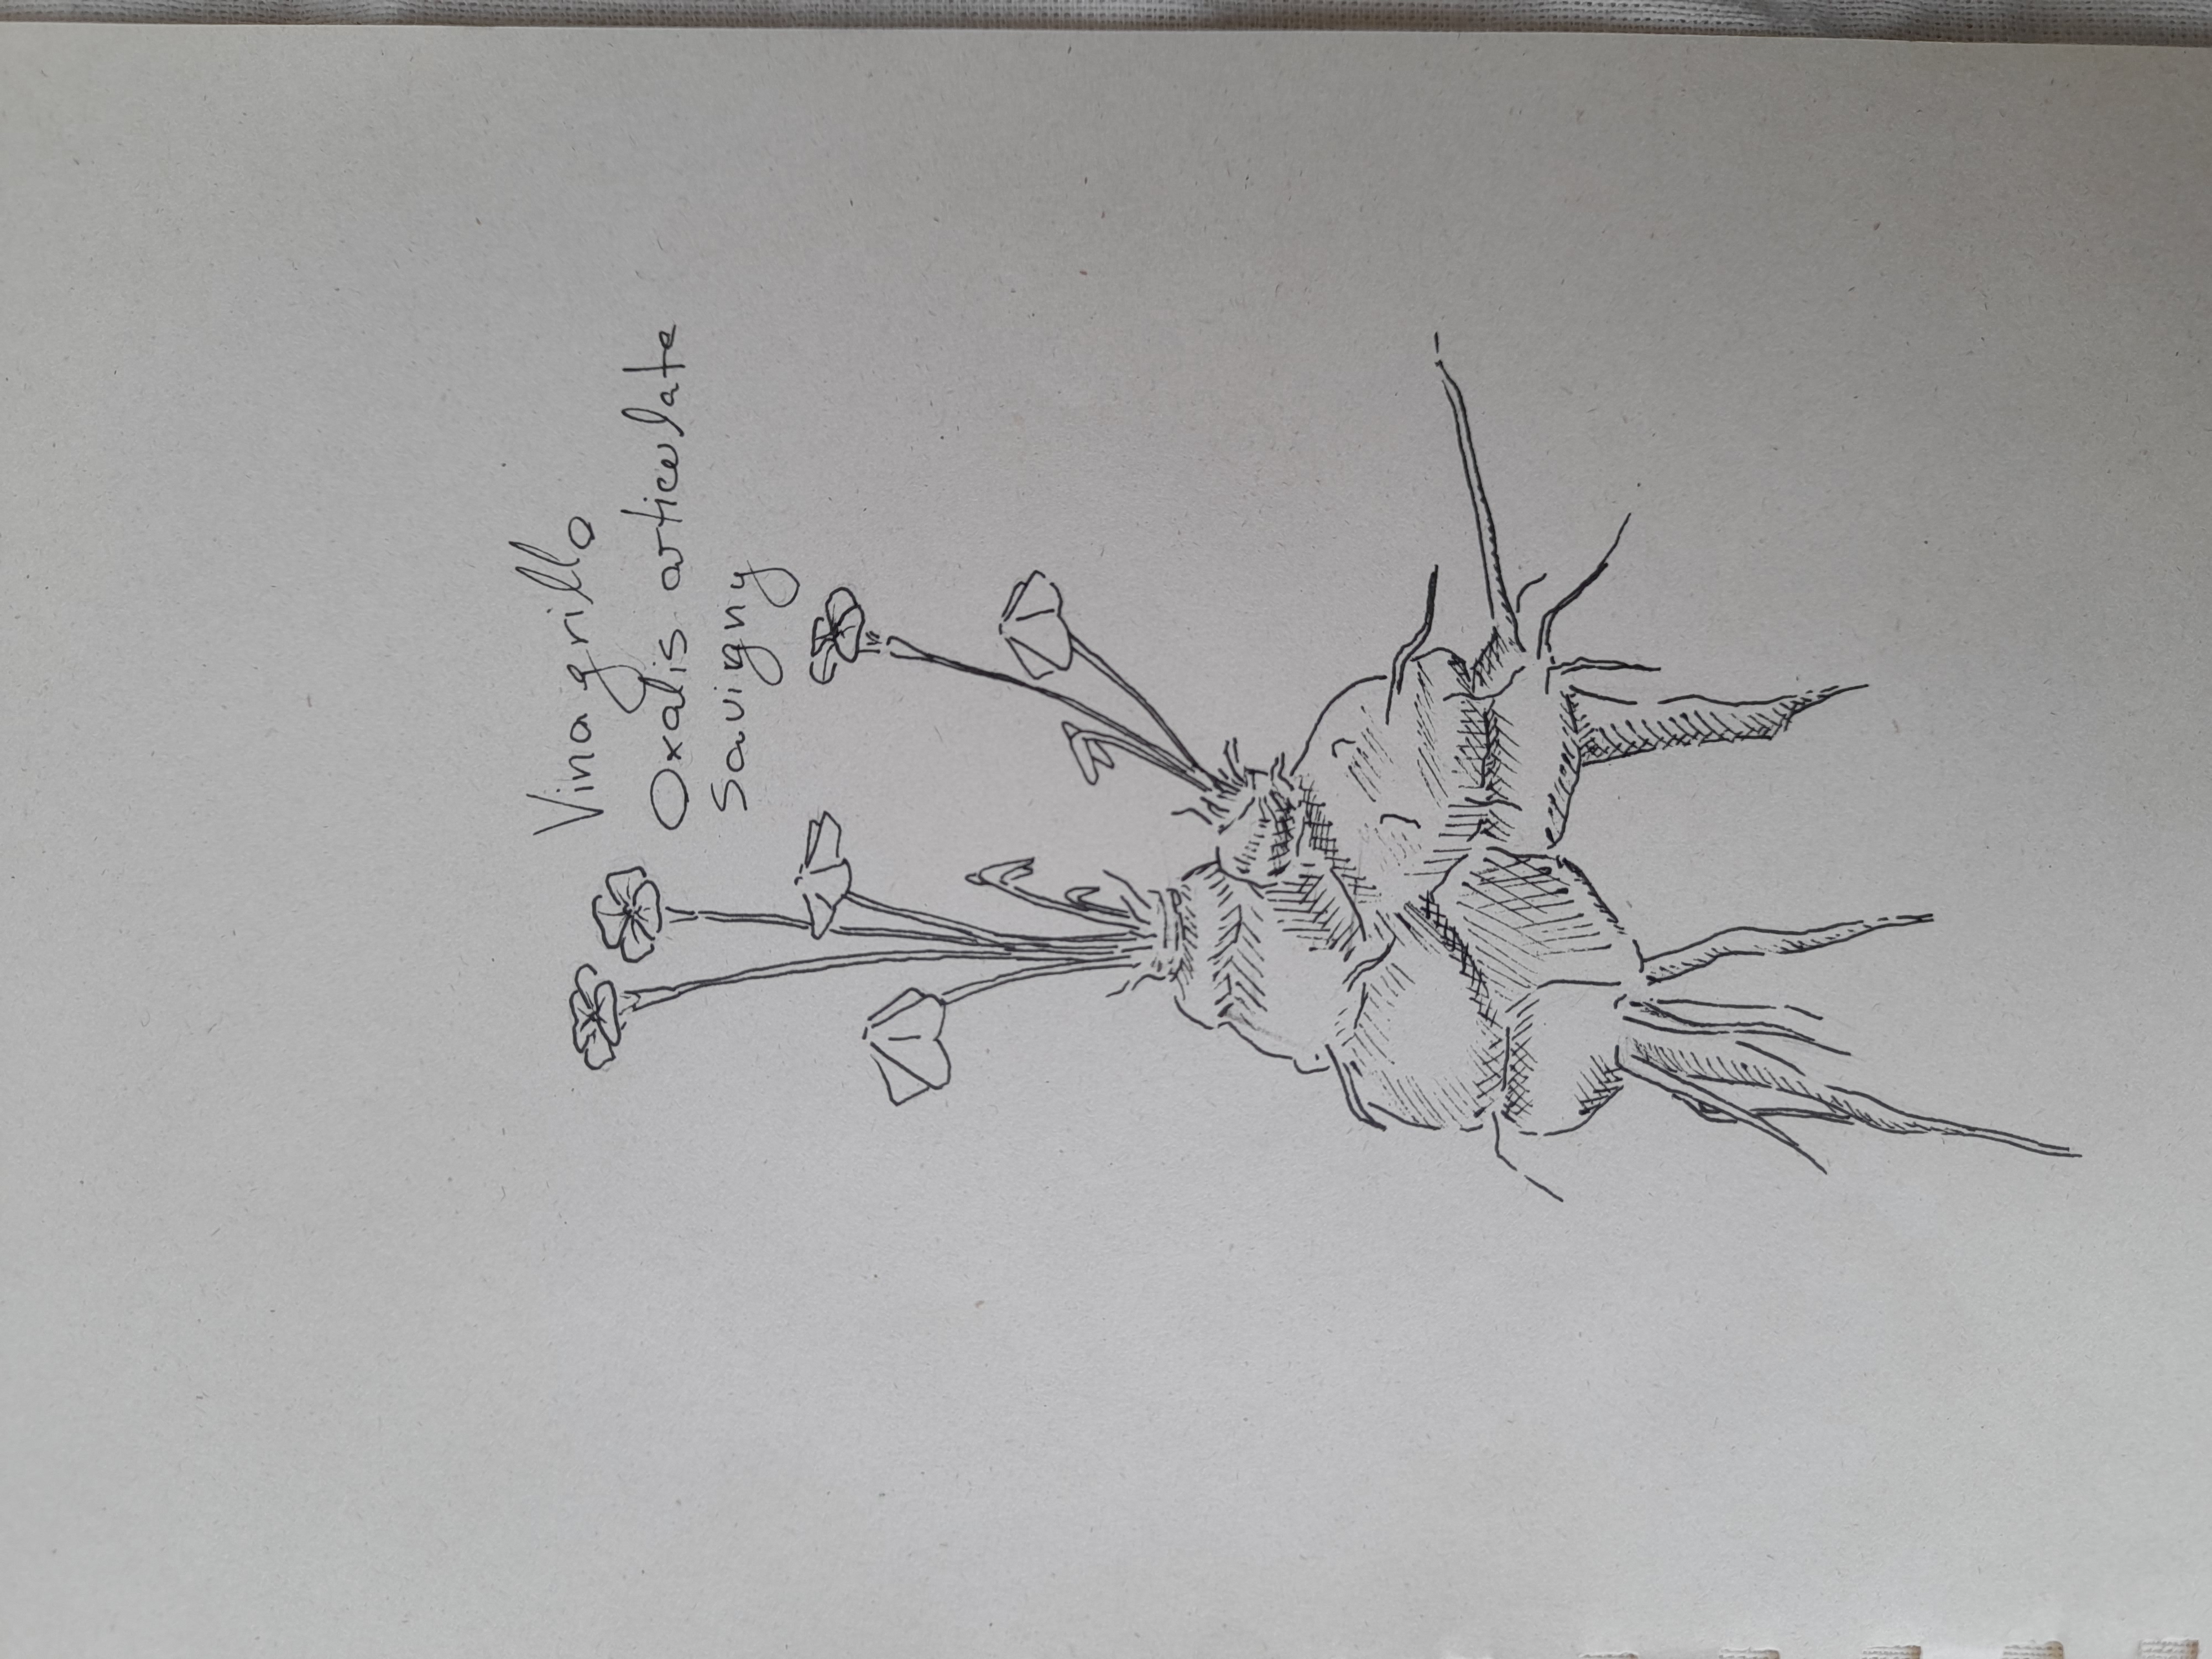 Vinagrillo
Oxalis articulata
Savigny